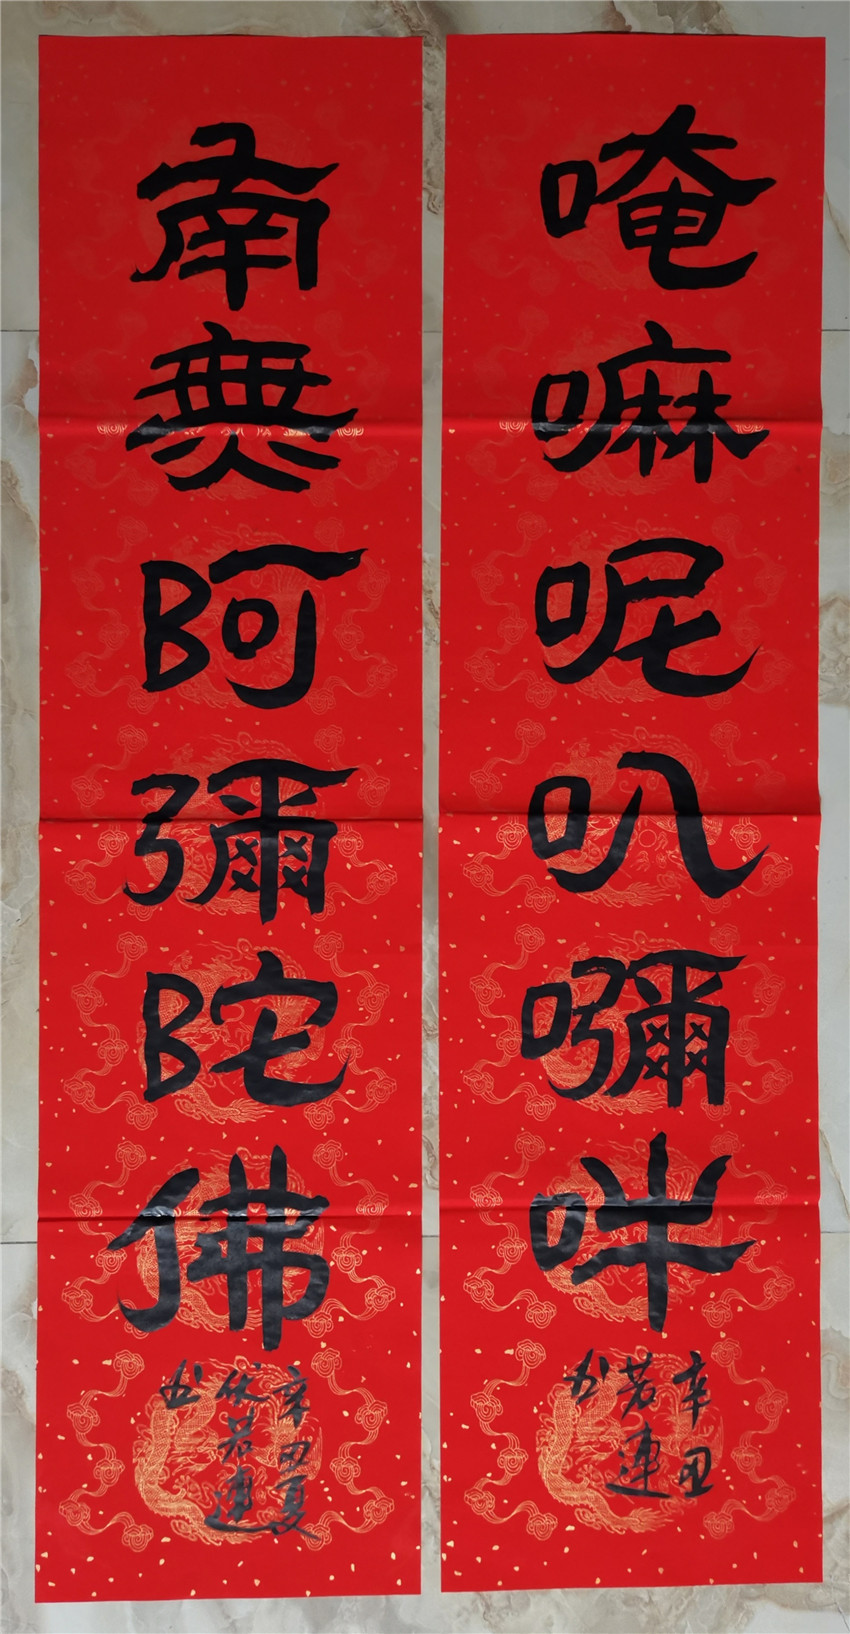 唵嘛呢叭嚩吽
辛丑
若連
书
南無阿彌陀佛
辛丑夏
伏若連
书